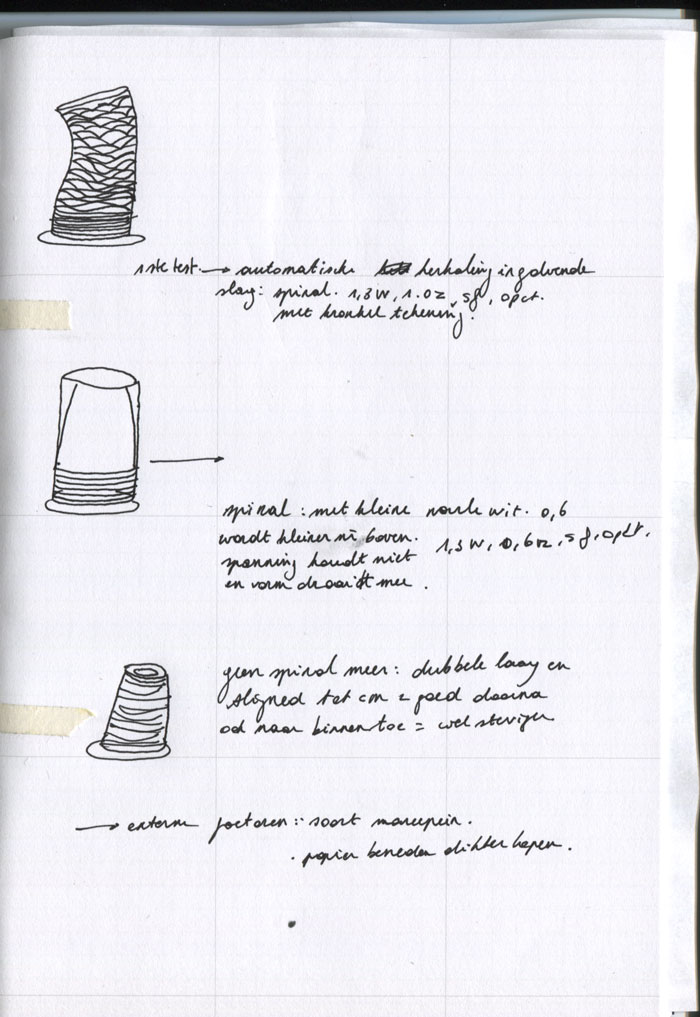 1ste test. → automatische herhaling in golvende
slag: spiral. 1,3 W, 1.0 z, sf, opct.
met kronkel tekening.
spiral : met kleine naald wit. 0,6
wordt kleiner n boven. 1,3 W, 0,6z, sf, opct.
spanning houdt niet
en vorm draait mee.
geen spiral meer: dubbele laag en
aligned tot cm = goed daarna
ook naar binnen toe = wel steviger
→ externe factoren : soort marsepein.
. papier beneden dichter